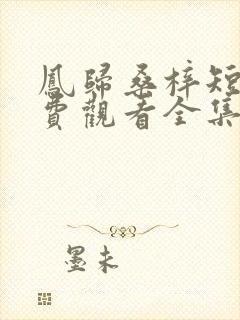 鳳歸桑梓短
費觀看全集
墨未